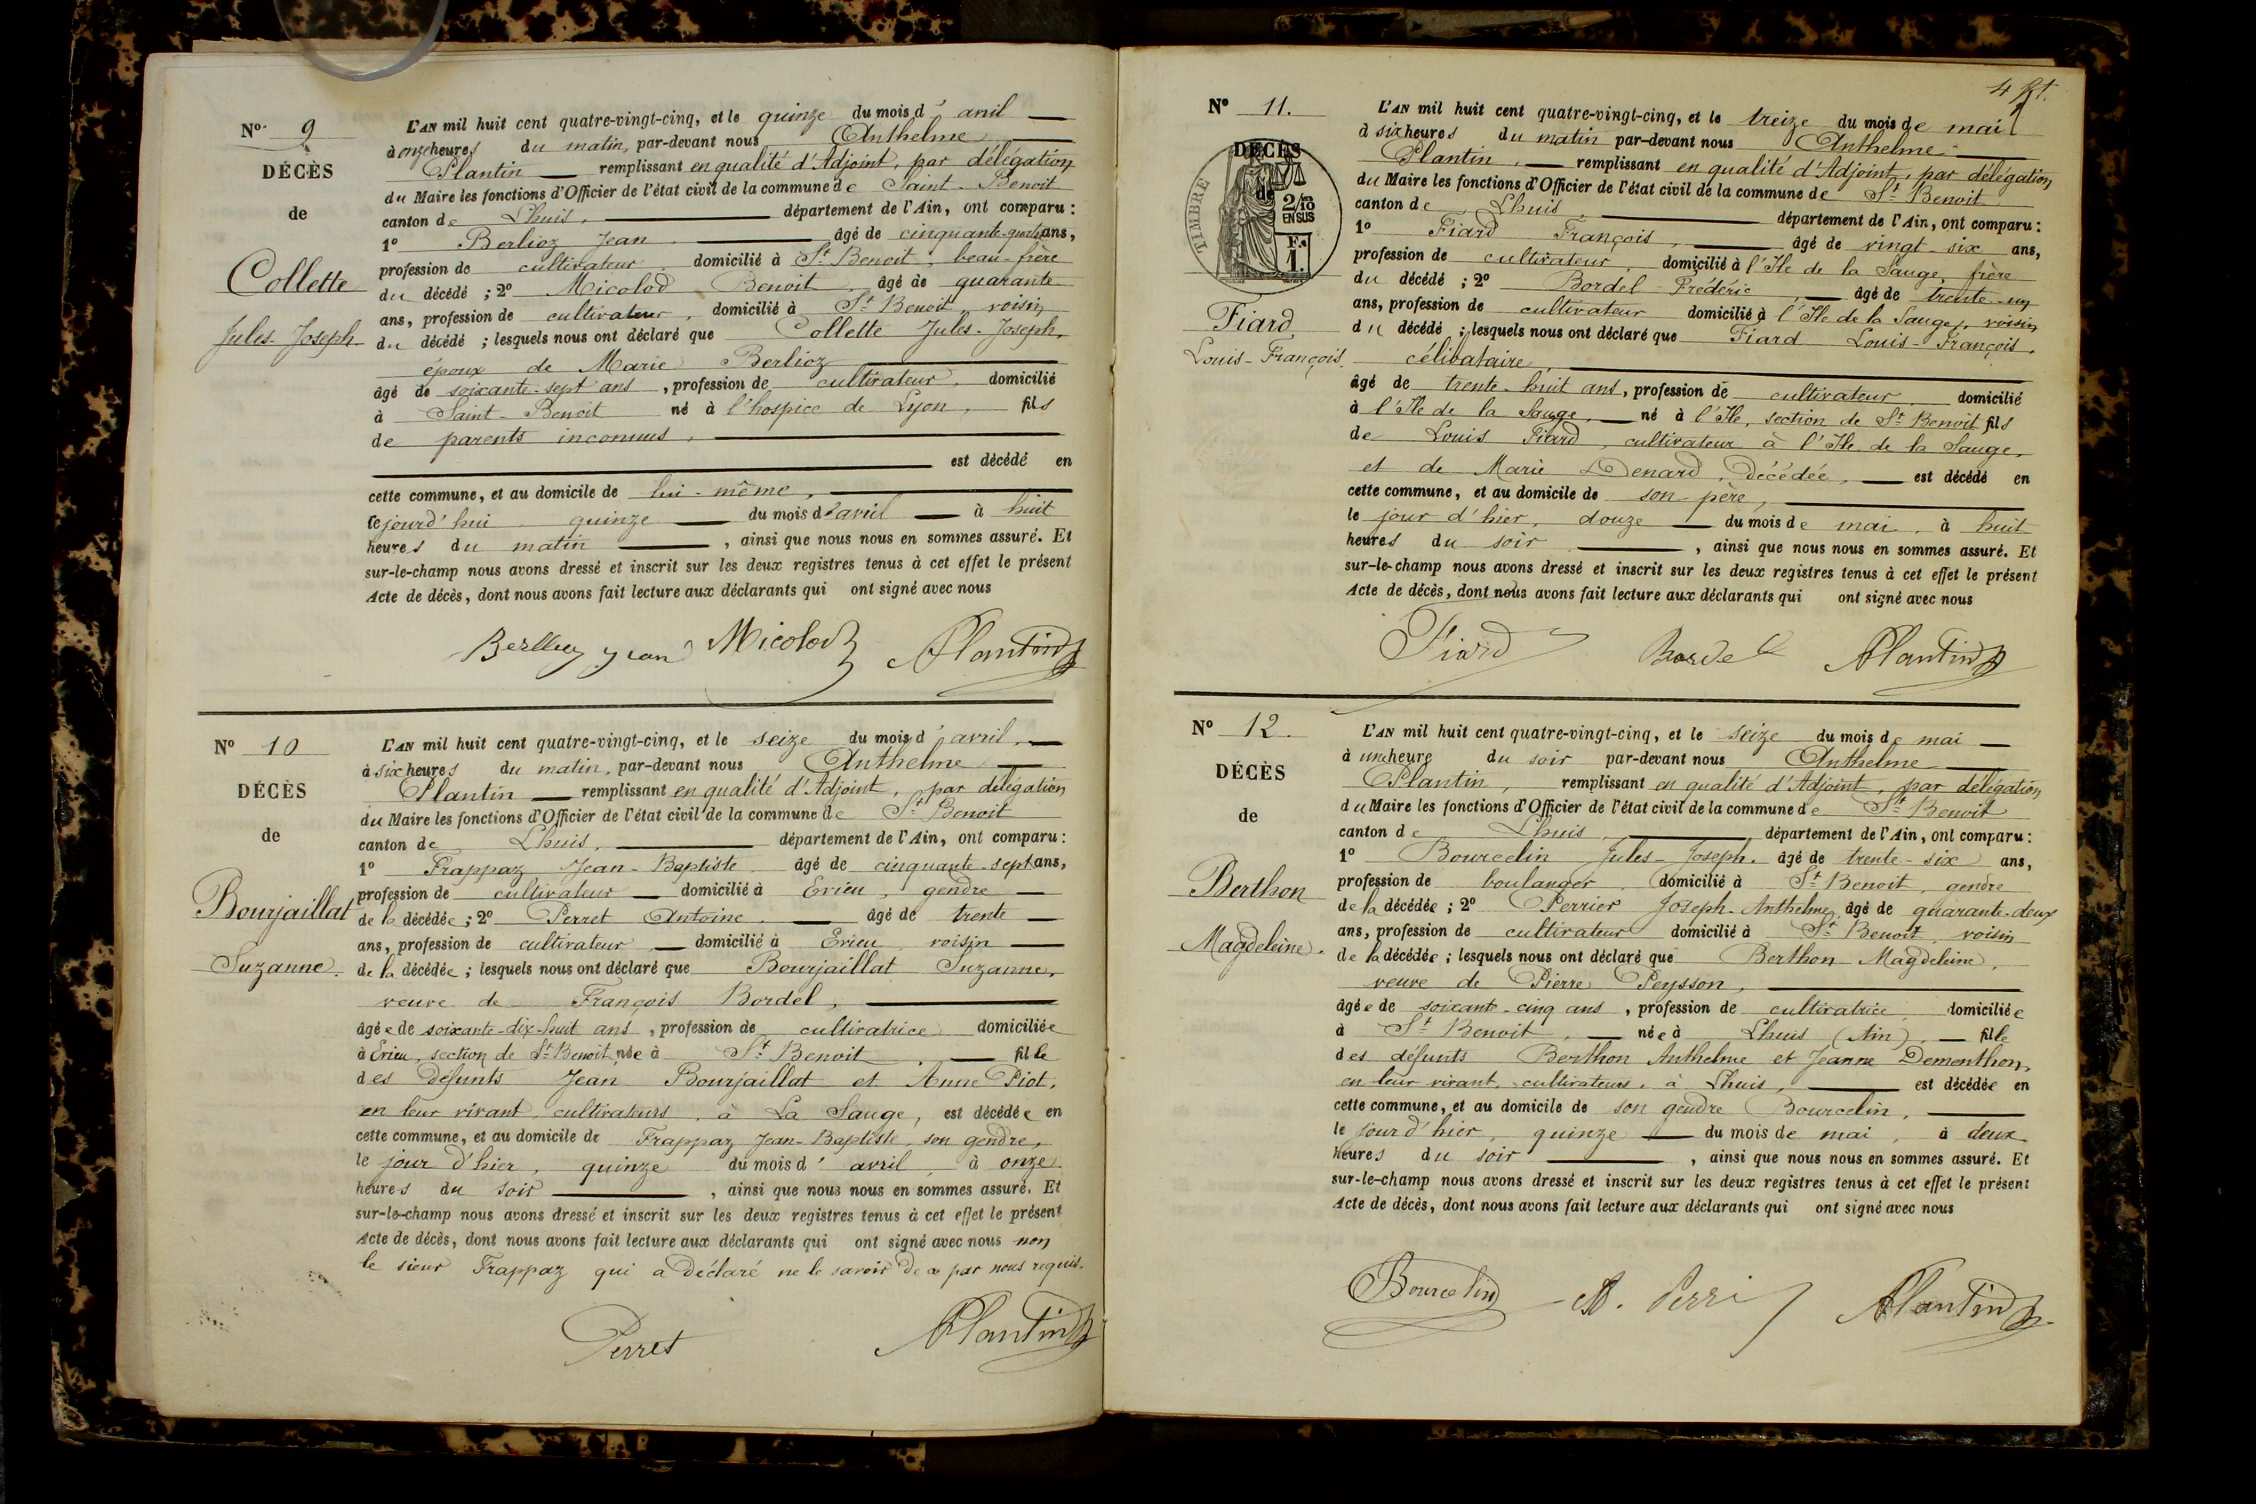 Nº 9
DÉCÈS
de
Collette
Jules-Joseph
L'AN mil huit cent quatre-vingt-cinq, et le quinze du mois d'avril
à onze heures du matin, par-devant nous Anthelme
Plantin remplissant en qualité d'Adjoint, par délégation
du Maire les fonctions d'Officier de l'état civil de la commune de Saint-Benoit
canton de Lhuis, département de l'Ain, ont comparu :
1º Berlioz Jean âgé de cinquante-quatre ans,
profession de cultivateur, domicilié à St Benoit, beau-frère
du décédé ; 2º Micolod Benoit âgé de quarante
ans, profession de cultivateur, domicilié à St Benoit voisin
du décédé ; lesquels nous ont déclaré que Collette Jules-Joseph,
époux de Marie Berlioz
âgé de soixante-sept ans, profession de cultivateur, domicilié
à Saint-Benoit né à l'hospice de Lyon, fils
de parents inconnus,
est décédé en
cette commune, et au domicile de lui-même,
cejourd'hui quinze du mois d'avril à huit
heures du matin, ainsi que nous nous en sommes assuré. Et
sur-le-champ nous avons dressé et inscrit sur les deux registres tenus à cet effet le présent
Acte de décès, dont nous avons fait lecture aux déclarants qui ont signé avec nous
Micolod Plantin
Nº 10
DÉCÈS
de
Bourjaillat
Suzanne.
L'AN mil huit cent quatre-vingt-cinq, et le seize du mois d'avril,
à six heures du matin, par-devant nous Anthelme
Plantin remplissant en qualité d'Adjoint, par délégation
du Maire les fonctions d'Officier de l'état civil de la commune de St Benoit
canton de Lhuis, département de l'Ain, ont comparu :
1º Frappaz Jean-Baptiste âgé de cinquante-sept ans,
profession de cultivateur domicilié à Erieu, gendre
de la décédée ; 2º Perret Antoine âgé de trente
ans, profession de cultivateur domicilié à Erieu voisin
de la décédée ; lesquels nous ont déclaré que Bourjaillat Suzanne,
veuve de François Bordel,
âgée de soixante-dix-huit ans, profession de cultivatrice domiciliée
à Erieu, section de St Benoit, née à St Benoit, fille
des défunts Jean Bourjaillat et Anne Piot,
en leur vivant, cultivateurs, à La Sauge, est décédée en
cette commune, et au domicile de Frappaz Jean-Baptiste, son gendre,
le jour d'hier, quinze du mois d'avril à onze
heures du soir, ainsi que nous nous en sommes assuré. Et
sur-le-champ nous avons dressé et inscrit sur les deux registres tenus à cet effet le présent
Acte de décès, dont nous avons fait lecture aux déclarants qui ont signé avec nous non
le sieur Frappaz qui a déclaré ne le savoir de ce par nous requis.
Perret Plantin
Nº 11.
DÉCÈS
de
TIMBRE
2/10
EN SUS
F.
1.
Fiard
Louis-François
L'AN mil huit cent quatre-vingt-cinq, et le treize du mois de mai
à six heures du matin par-devant nous Anthelme
Plantin, remplissant en qualité d'Adjoint, par délégation
du Maire les fonctions d'Officier de l'état civil de la commune de St Benoit
canton de Lhuis département de l'Ain, ont comparu :
1º Fiard François, âgé de vingt-six ans,
profession de cultivateur, domicilié à l'Ile de la Sauge, frère
du décédé ; 2º Bordel Frédéric, âgé de trente-un
ans, profession de cultivateur domicilié à l'Ile de la Sauge, voisin
du décédé ; lesquels nous ont déclaré que Fiard Louis-François,
célibataire,
âgé de trente-huit ans, profession de cultivateur domicilié
à l'Ile de la Sauge, né à l'Ile, section de St Benoit fils
de Louis Fiard, cultivateur à l'Ile de la Sauge,
et de Marie Denard, décédée, est décédé en
cette commune, et au domicile de son père,
le jour d'hier, douze du mois de mai, à huit
heures du soir, ainsi que nous nous en sommes assuré. Et
sur-le-champ nous avons dressé et inscrit sur les deux registres tenus à cet effet le présent
Acte de décès, dont nous avons fait lecture aux déclarants qui ont signé avec nous
Fiard Bordel Plantin
Nº 12.
DÉCÈS
de
Berthon
Magdeleine.
L'AN mil huit cent quatre-vingt-cinq, et le seize du mois de mai
à une heure du soir par-devant nous Anthelme
Plantin, remplissant en qualité d'Adjoint, par délégation
du Maire les fonctions d'Officier de l'état civil de la commune de St Benoit
canton de Lhuis, département de l'Ain, ont comparu :
1º Bourcelin Jules-Joseph, âgé de trente-six ans,
profession de boulanger domicilié à St Benoit, gendre
de la décédée ; 2º Perrier Joseph-Anthelme, âgé de quarante-deux
ans, profession de cultivateur domicilié à St Benoit, voisin
de la décédée ; lesquels nous ont déclaré que Berthon Magdeleine,
veuve de Pierre Peysson,
âgée de soixante-cinq ans, profession de cultivatrice, domiciliée
à St Benoit, née à Lhuis (Ain), fille
des défunts Berthon Anthelme et Jeanne Demonthon,
en leur vivant, cultivateurs, à Lhuis, est décédée en
cette commune, et au domicile de son gendre Bourcelin,
le jour d'hier, quinze du mois de mai, à deux
heures du soir, ainsi que nous nous en sommes assuré. Et
sur-le-champ nous avons dressé et inscrit sur les deux registres tenus à cet effet le présent
Acte de décès, dont nous avons fait lecture aux déclarants qui ont signé avec nous
Bourcelin Plantin